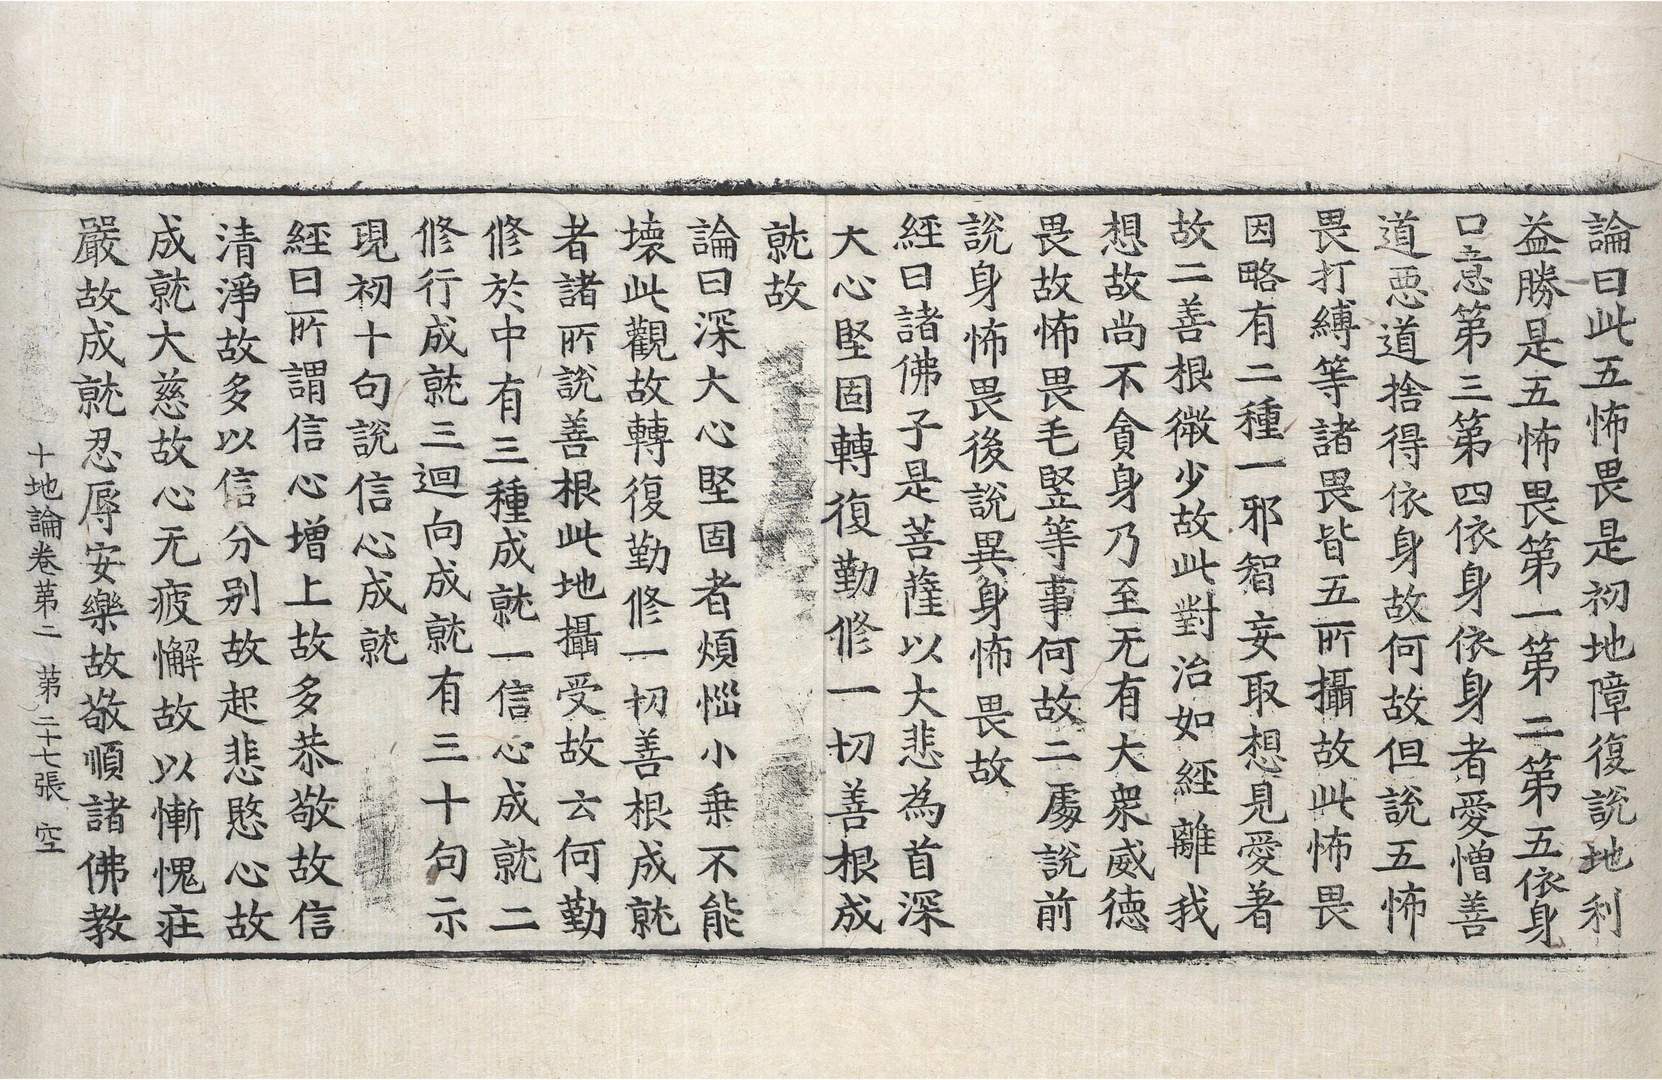 論曰此五怖畏是初地障復說地利
益勝是五怖畏第一第二第五依身
口意第三第四依身依身者愛憎善
道惡道捨得依身故何故但說五怖
畏打縛等諸畏皆五所攝故此怖畏
因略有二種一邪智妄取想見愛著
故二善根微少故此對治如經離我
想故尚不貪身乃至无有大衆威德
畏故怖畏毛竪等事何故二處說前
說身怖畏後說異身怖畏故
經曰諸佛子是菩薩以大悲為首深
大心堅固轉復勤修一切善根成
就故
論曰深大心堅固者煩惱小乗不能
壞此觀故轉復勤修一切善根成就
者諸所說善根此地攝受故云何勤
修於中有三種成就一信心成就二
修行成就三迴向成就有三十句示
現初十句說信心成就
經曰所謂信心增上故多恭敬故信
清淨故多以信分別故起悲愍心故
成就大慈故心无疲懈故以慚愧莊
嚴故成就忍辱安樂故敬順諸佛教
十地論卷第二 第二十七張 空